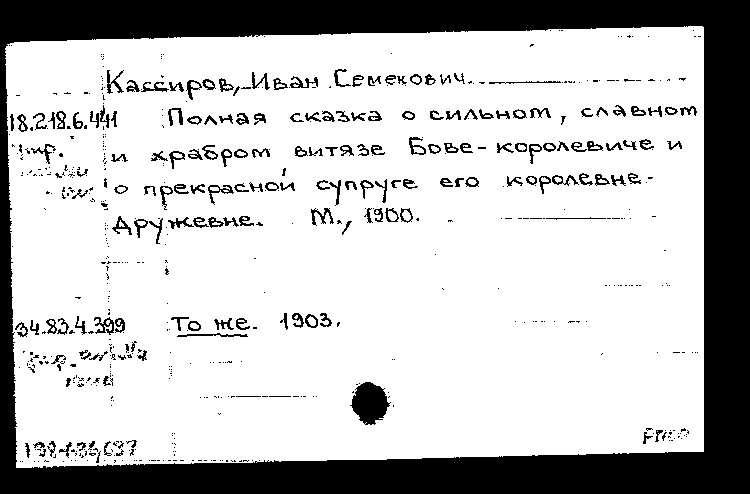 Кассиров, Иван Семекович
18.218.6.441 Полная сказка о сильном, славном
и храбром витязе Бове-королевиче и
о прекрасной супруге его королевне
Дружевне. М., 1900.
34.83.4.399 То же. 1903.